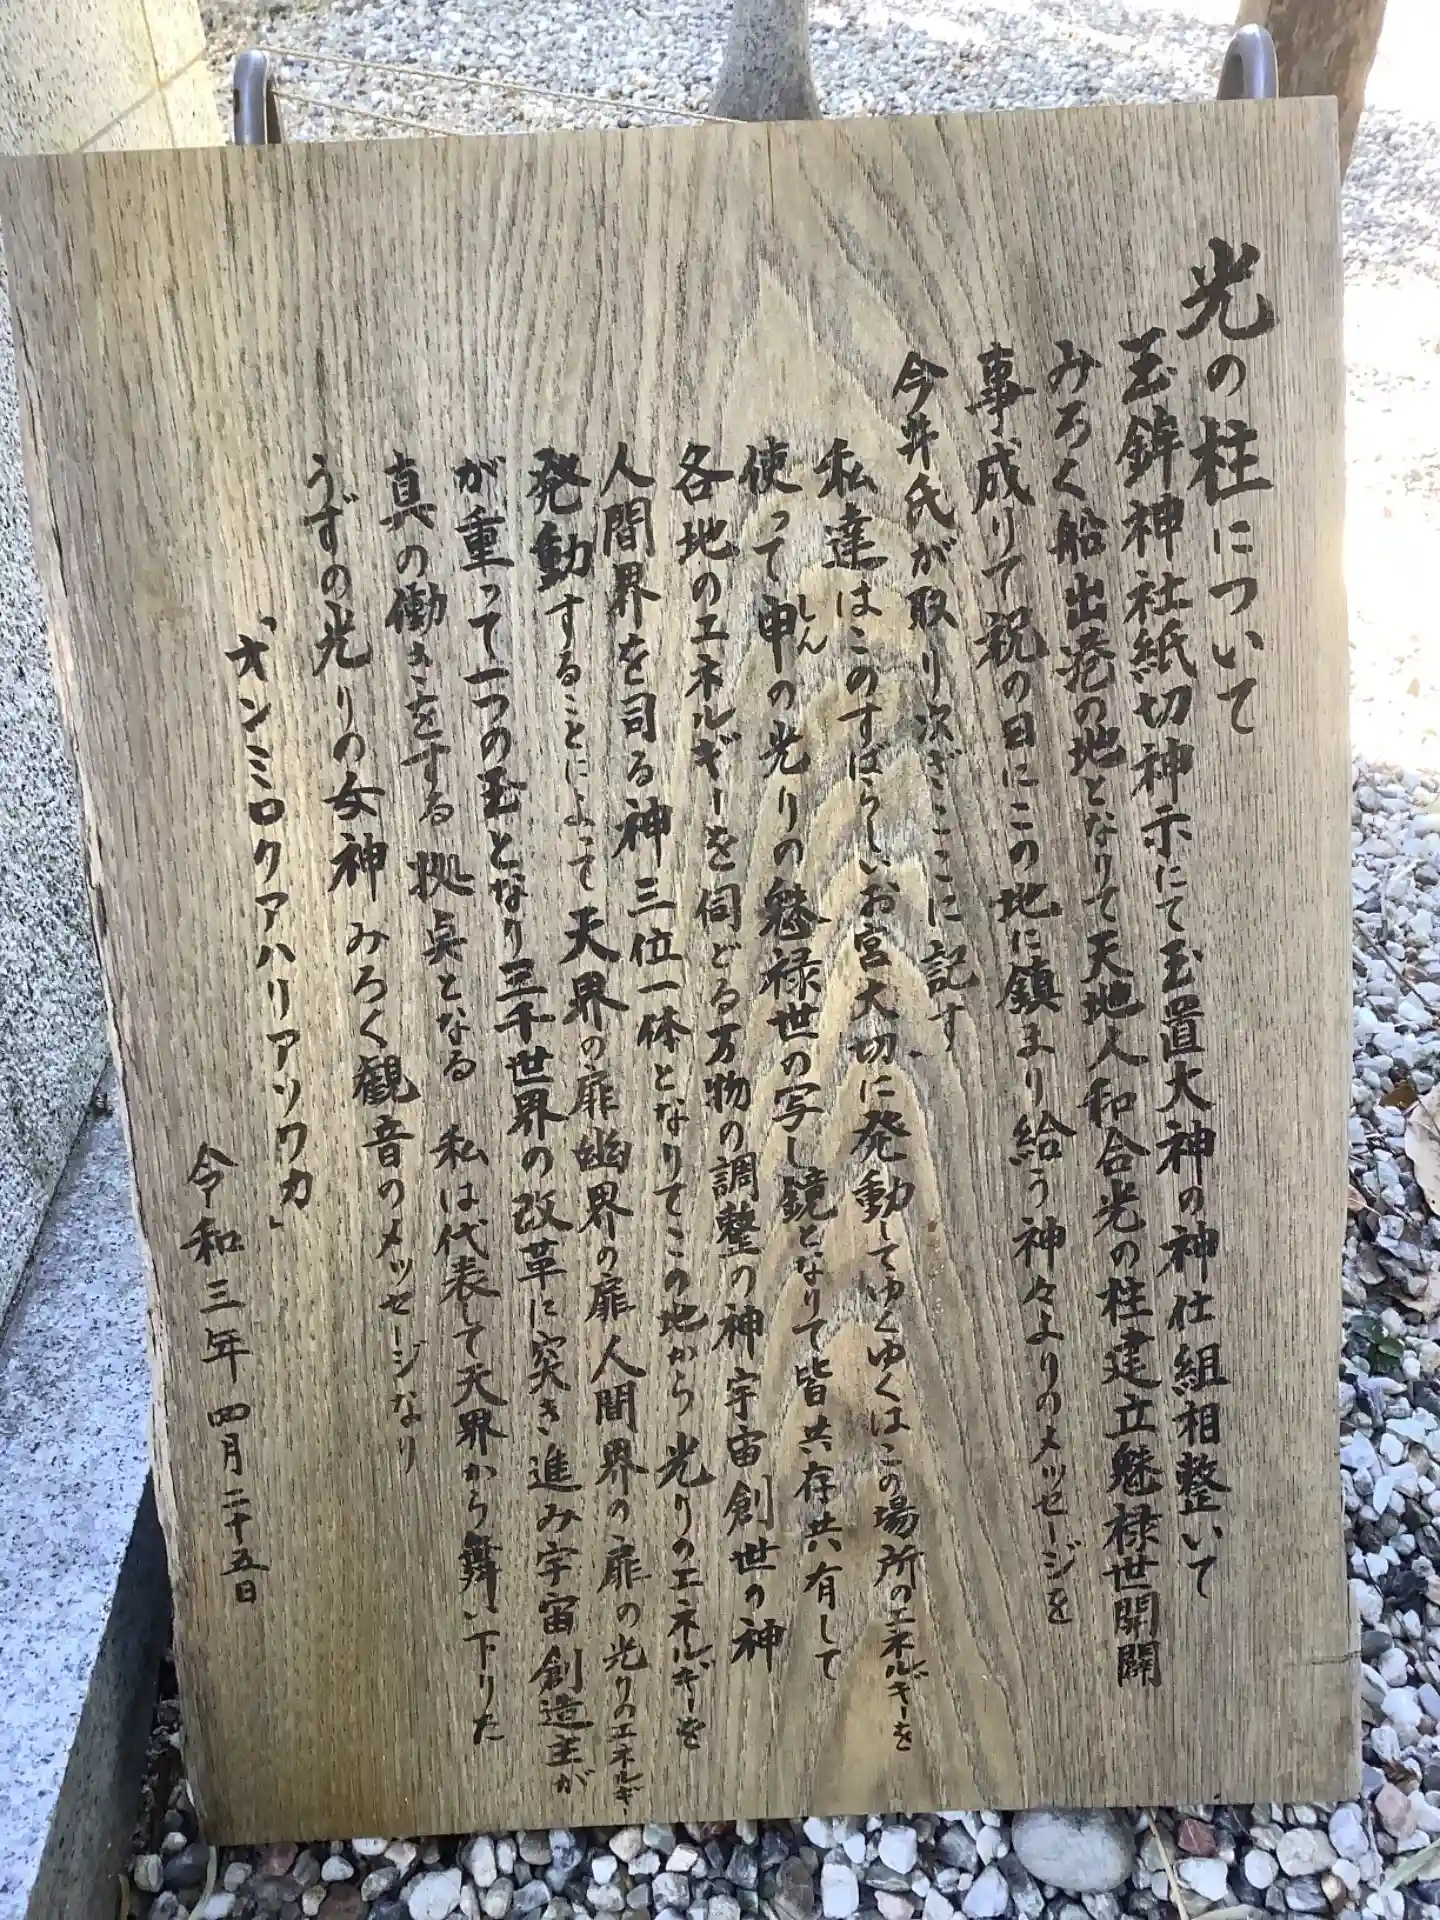 光の柱について
玉鉾神社紙切神示にて玉置大神の神仕組相整いて
みろく船出港の地となりて天地人和合光の柱建立魅禄世開闢
事成りて祝の日にこの地に鎮まり給う神々よりのメッセージを
今井氏が取り次ぎここに記す
私達はこのすばらしいお宮大切に発動してゆくゆくはこの場所のエネルギーを
使って申の光りの魅禄世の写し鏡となりて皆共存共有して
しん
各地のエネルギーを伺どる万物の調整の神宇宙創世の神
人間界を司る神三位一体となりてこの地から光りのエネルギーを
発動することによって天界の扉幽界の扉人間界の扉の光りのエネルギー
が重って一つの玉となり三千世界の改革に突き進み宇宙創造主が
真の働きをする拠点となる 私は代表して天界から舞い下りた
うずの光りの女神みろく観音のメッセージなり
「オンミロクアハリアツワカ」
令和三年四月二十五日